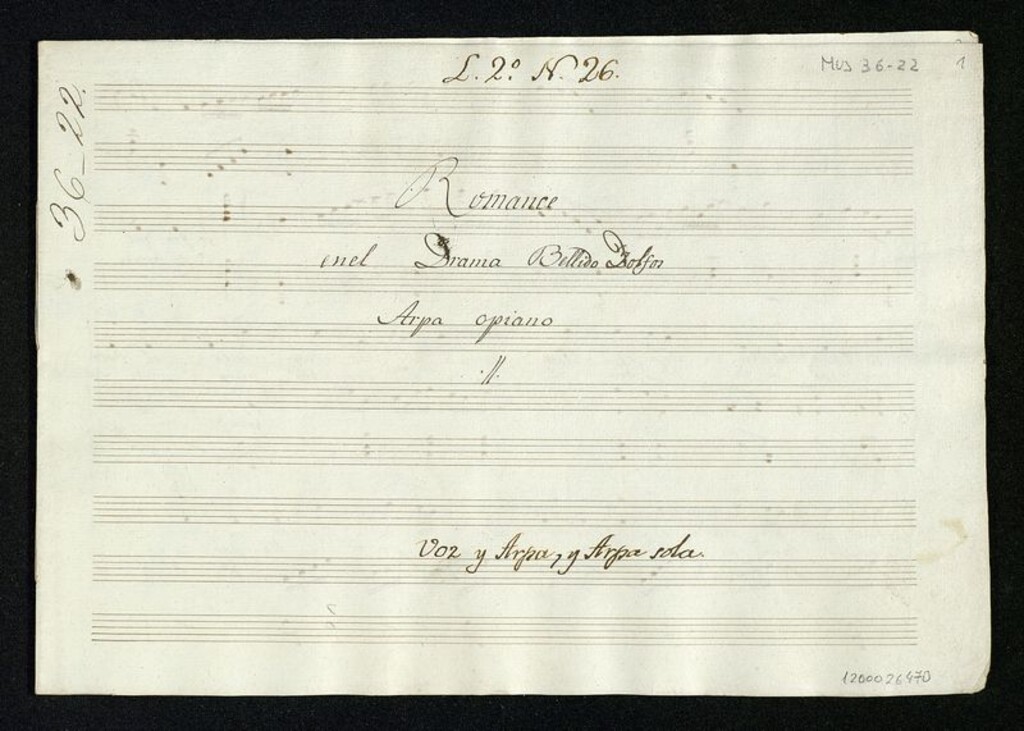 L. 2º N. 26.
MUS 36-22
1
36-22.
Romance
enel Drama Bellido Dolfos
Arpa opiano
.//.
Voz y Arpa, y Arpa sola.
1200026470